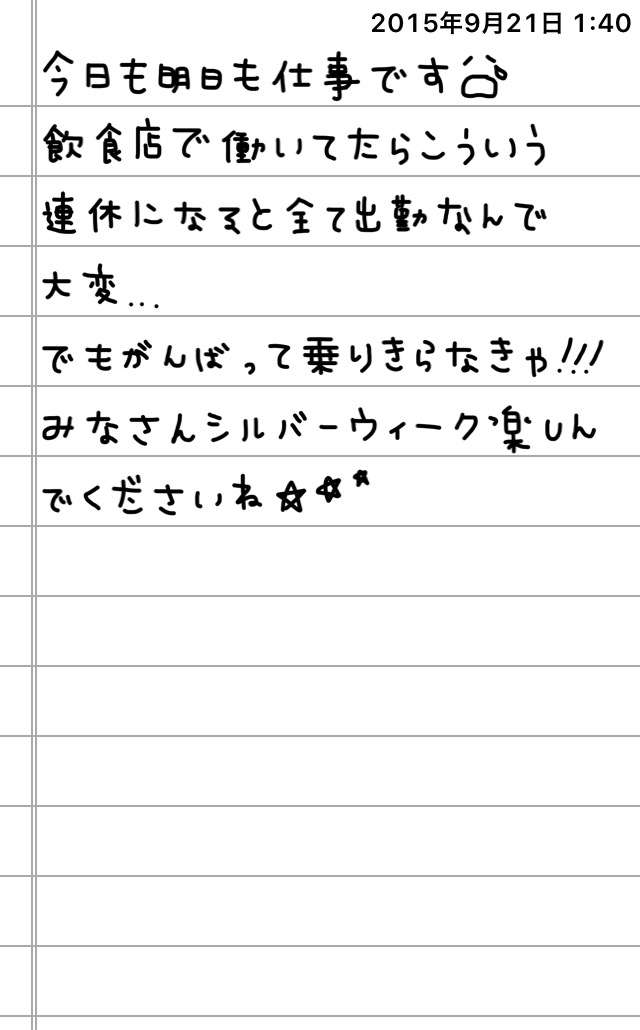 2015年9月21日 1:40
今日も明日も仕事です
飲食店で働いてたらこういう
連休になると全て出勤なんで
大変...
でもがんばって乗りきらなきゃ!!!
みなさんシルバーウィーク楽しん
でくださいね☆☆☆